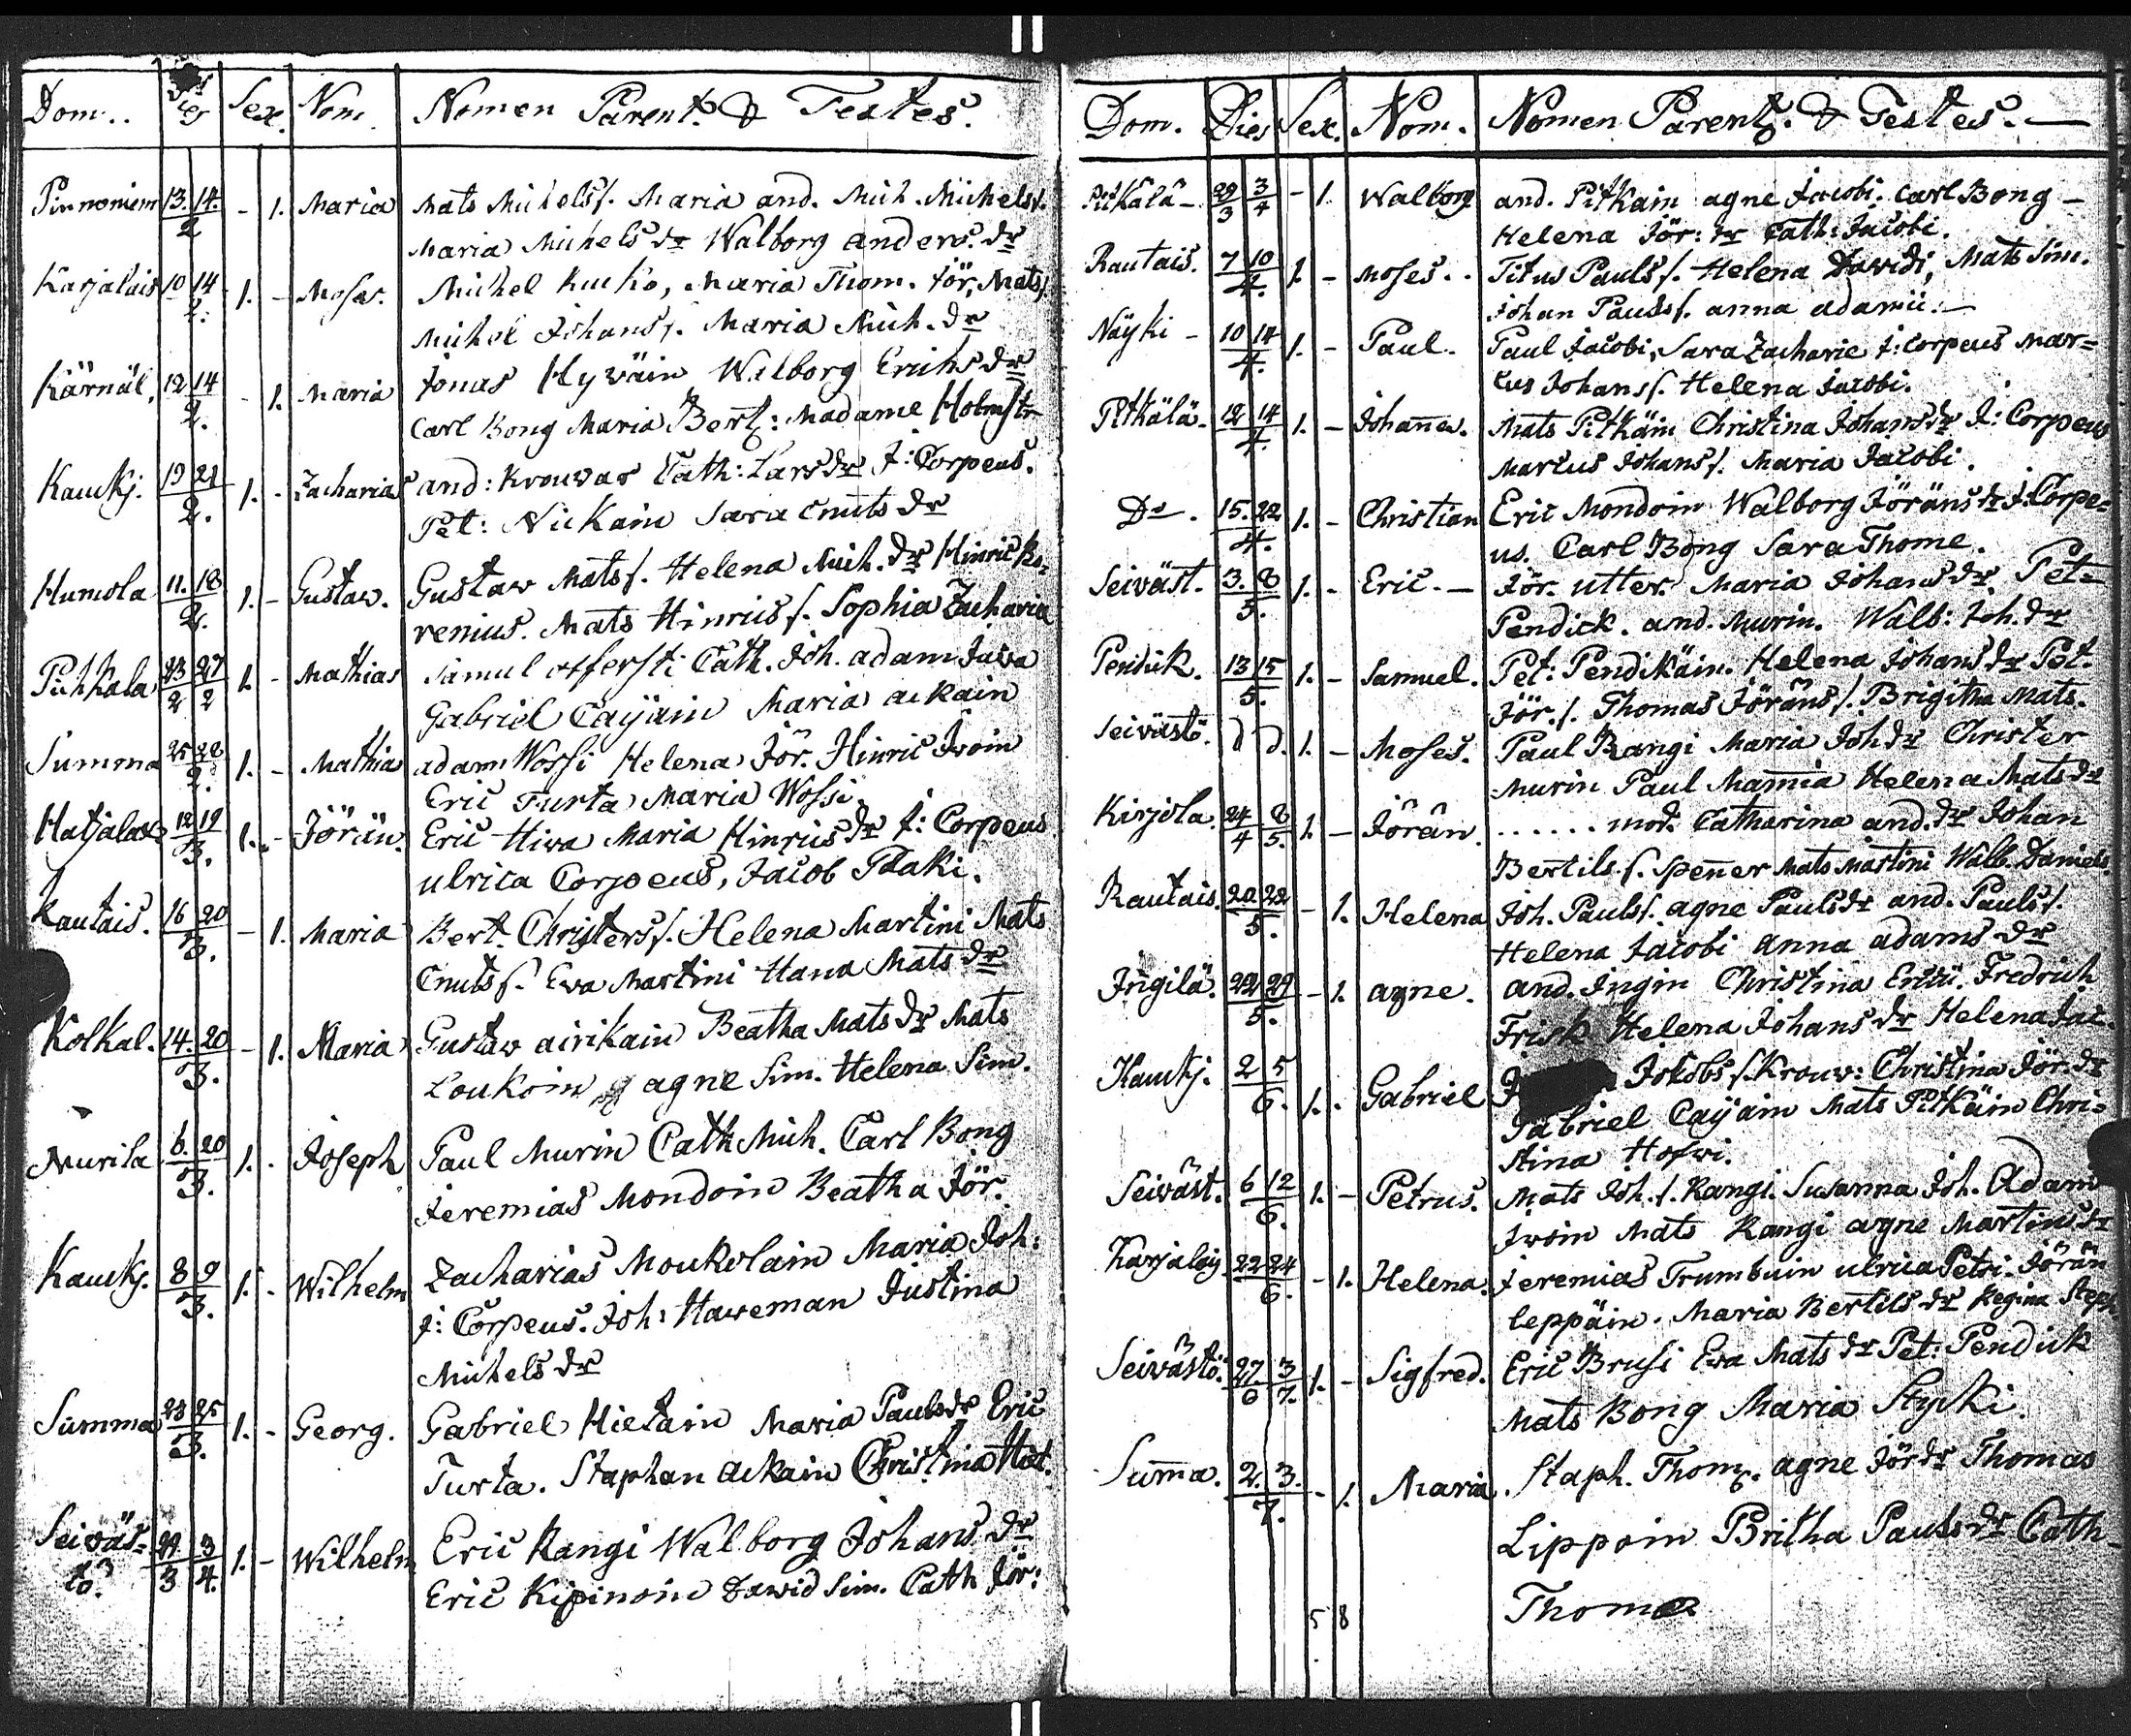 Dom. Dies Sex. Nom. Nomen Parent. & Testes.
Pinnoniem 13. 14. - 1. Maria Mats Michelss. Maria And. Mich. Michelss.
2 Maria Michels dr Walborg Anders. dr
Karjalais 10 14 1. - Moses. Michel Kucko, Maria Thom. Jör. Matss.
2. Michel Johanss. Maria Mich. dr
Kärnäl. 12 14 - 1. Maria Jonas Hyväin Walborg Erichs dr
2. Carl Bong Maria Bert: Madame Holmstr
Kauckj. 19 21 1. - Zacharias And: Krouwar Cath: Lars dr J: Corpeus.
2. Pet: Nickain Sara Cnuts dr
Humola 11. 18 1. - Gustaw. Gustaw Matss. Helena Mich. dr Hinric Ko=
2. renius. Mats Hinricss. Sophia Zacharia
Pihkala 23 27 1. - Mathias Samul Cath. Joh. Adam Juwa
2 2 Gabriel Cayain Maria Ackain
Summa 25 28 1. - Mathia Adam Wossi Helena Jör. Hinric Iwoin
2. Eric Turta Maria Wossi.
Hatjalax 12 19 1. - Jörän. Eric Hiwa Maria Hinrics dr J: Corpeus
3. Ulrica Corpeus, Jacob Paaki.
Rautais. 16 20 - 1. Maria Bert. Christerss. Helena Martini Mats
3. Cnutss. Ewa Martini Hana Mats dr
Kolkal. 14. 20 - 1. Maria Gustaw Airikain Beatha Mats dr Mats
3. Loukoin Agne Sim. Helena Sim.
Murila 6. 20 1. - Joseph Paul Murin Cath Mich. Carl Bong
3. Jeremias Mondoin Beatha Jör.
Kauckj. 8 9 1. - Wilhelm Zacharias Moukolain Maria Joh:
3. J: Corpeus. Joh: Haweman Justina
Michels dr
Summa 23 25 1. - Georg. Gabriel Hietain Maria Pauls dr Eric
3. Turta. Staphan Ackain Christina Hat.
Seiwäs= 29 3 1. - Wilhelm Eric Rangi Walborg Johans dr
tö. 3 4. Eric Kipinoin Dawid Sim. Cath Jör:
Dom. Dies Sex. Nom. Nomen Parent. & Testes.
Pitkälä - 29 3 - 1. Walborg And. Pitkain Agne Jacobi. Carl Bong -
3 4 Helena Jör: dr Cath: Jacobi.
Rautais. 7 10 1. - Moses. Titus Paulss. Helena Dawidi, Mats Sim.
4. Johan Paulss. Anna Adamii.
Näyki - 10 14 1. - Paul. Paul Jacobi, Sara Zacharie J: Corpeus Mar=
4. cus Johanss. Helena Jacobi.
Pitkälä. 12 14 1. - Johanes. Mats Pitkäin Christina Johans dr J: Corpeus
4. Marcus Johanss. Maria Jacobi.
Do. 15. 22 1. - Christian Eric Mondoin Walborg Jöräns dr J: Corpe=
4. us. Carl Bong Sara Thome.
Seiväst. 3. 8 1. - Eric. - Jör. Utter. Maria Johans dr. Pet=
5. Pendick. And. Murin. Walb: Joh. dr
Pendick. 13 15 1. - Samuel. Pet: Pendikäin. Helena Johans dr Pet.
5. Jör.s. Thomas Jöränss. Brigitha Mats.
Seivästö. d d. 1. - Moses. Paul Rangi Maria Joh dr Christer
Murin Paul Mamia Helena Mats dr
Kirjola. 24 8 1. - Jörän. ...... mod. Catharina And. dr Johan
4 5. Bertils s. Spener Mats Martini Walb. Daniels.
Rautais. 20. 22 - 1. Helena Joh. Paulss. Agne Pauls dr And. Paulss.
5. Helena Jacobi Anna Adams dr
Ingilä. 22 29 - 1. Agne. And. Ingin Christina Erici. Fredrich
5. Frisk Helena Johans dr Helena Jac.
Kauckj. 2 5 1. - Gabriel Jakobs s. Krouw: Christina Jör. dr
6. Gabriel Cayain Mats Pitkäin Chri=
stina Hofwi.
Seiväst. 6 12 1. - Petrus. Mats Joh. s. Rangi. Susanna Joh. Adam
6. Iwoin Mats Rangi Agne Martins dr
Karjalais 22 24 - 1. Helena. Jeremias Trumbuin Ulrica Petri. Jörän
6. Leppäin. Maria Bertils dr Regina Steph.
Seivästö. 27 3 1. - Sigfred. Eric Brusi Ewa Mats dr Pet: Pendick
6 7. Mats Bong Maria Stycki.
Suma. 2. 3. - 1. Maria. Staph. Thom. Agne Jör dr Thomas
7. Lippoin Britha Pauls dr Cath=
5 8 Thomæ